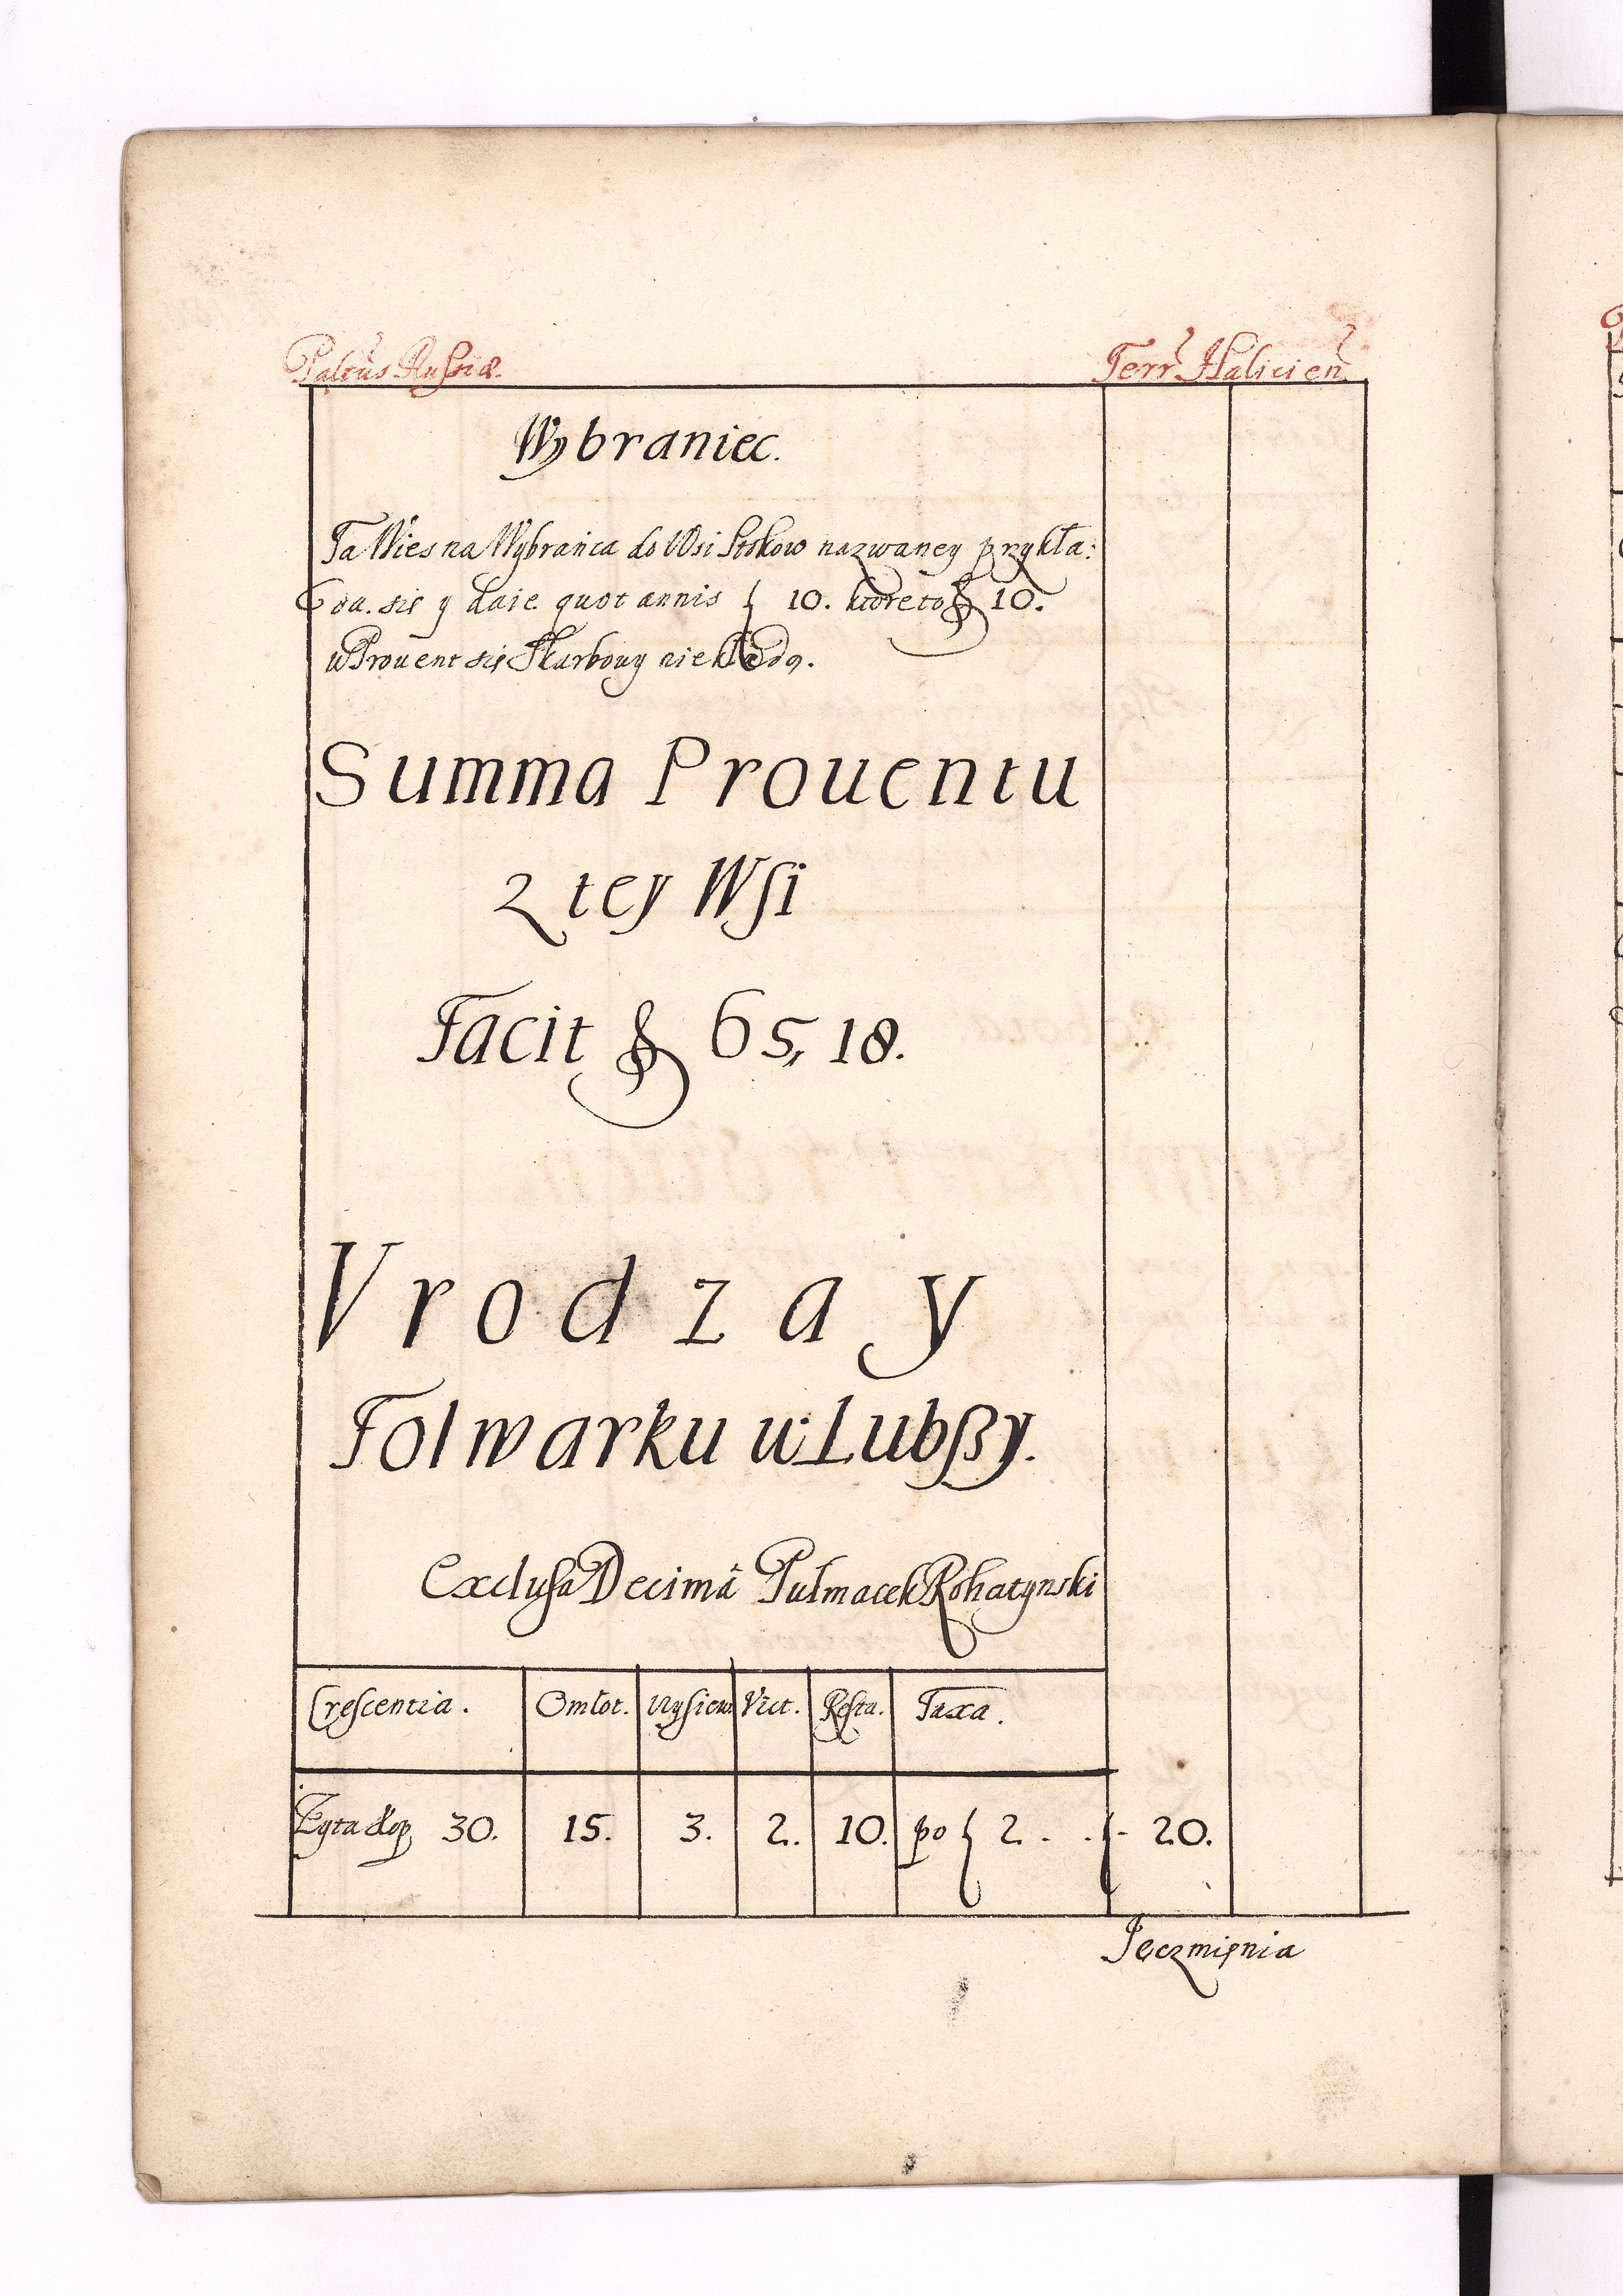 Paltus Russiæ. Terr Halicien
Wybraniec.
Ta Wies na Wybrańca do Wsi nazwaney przykła:
da. się y daie quot annis ƒ 10. ktoreto ƒ 10.
w Prouent się Skarbowy niekładą.
Summa Prouentu
z tey Wsi
Facit ƒ 65, 18.
Vrodzay
Folwarku w Lubßy.
Exclusa Decimâ Pułmacek Rohatynski
Crescentia. Omłot. Wysiew Vict. Resta. Taxa.
Zyta kop 30. 15. 3. 2. 10. po ƒ 2 . . ƒ 20.
Jęczmięnia